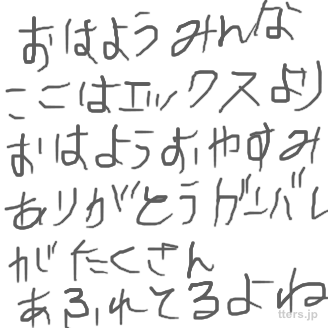 おはようみんな
ここはエックスより
おはようおやすみ
ありがとうガーバレ
がたくさん
あふれてるよね
tters.jp